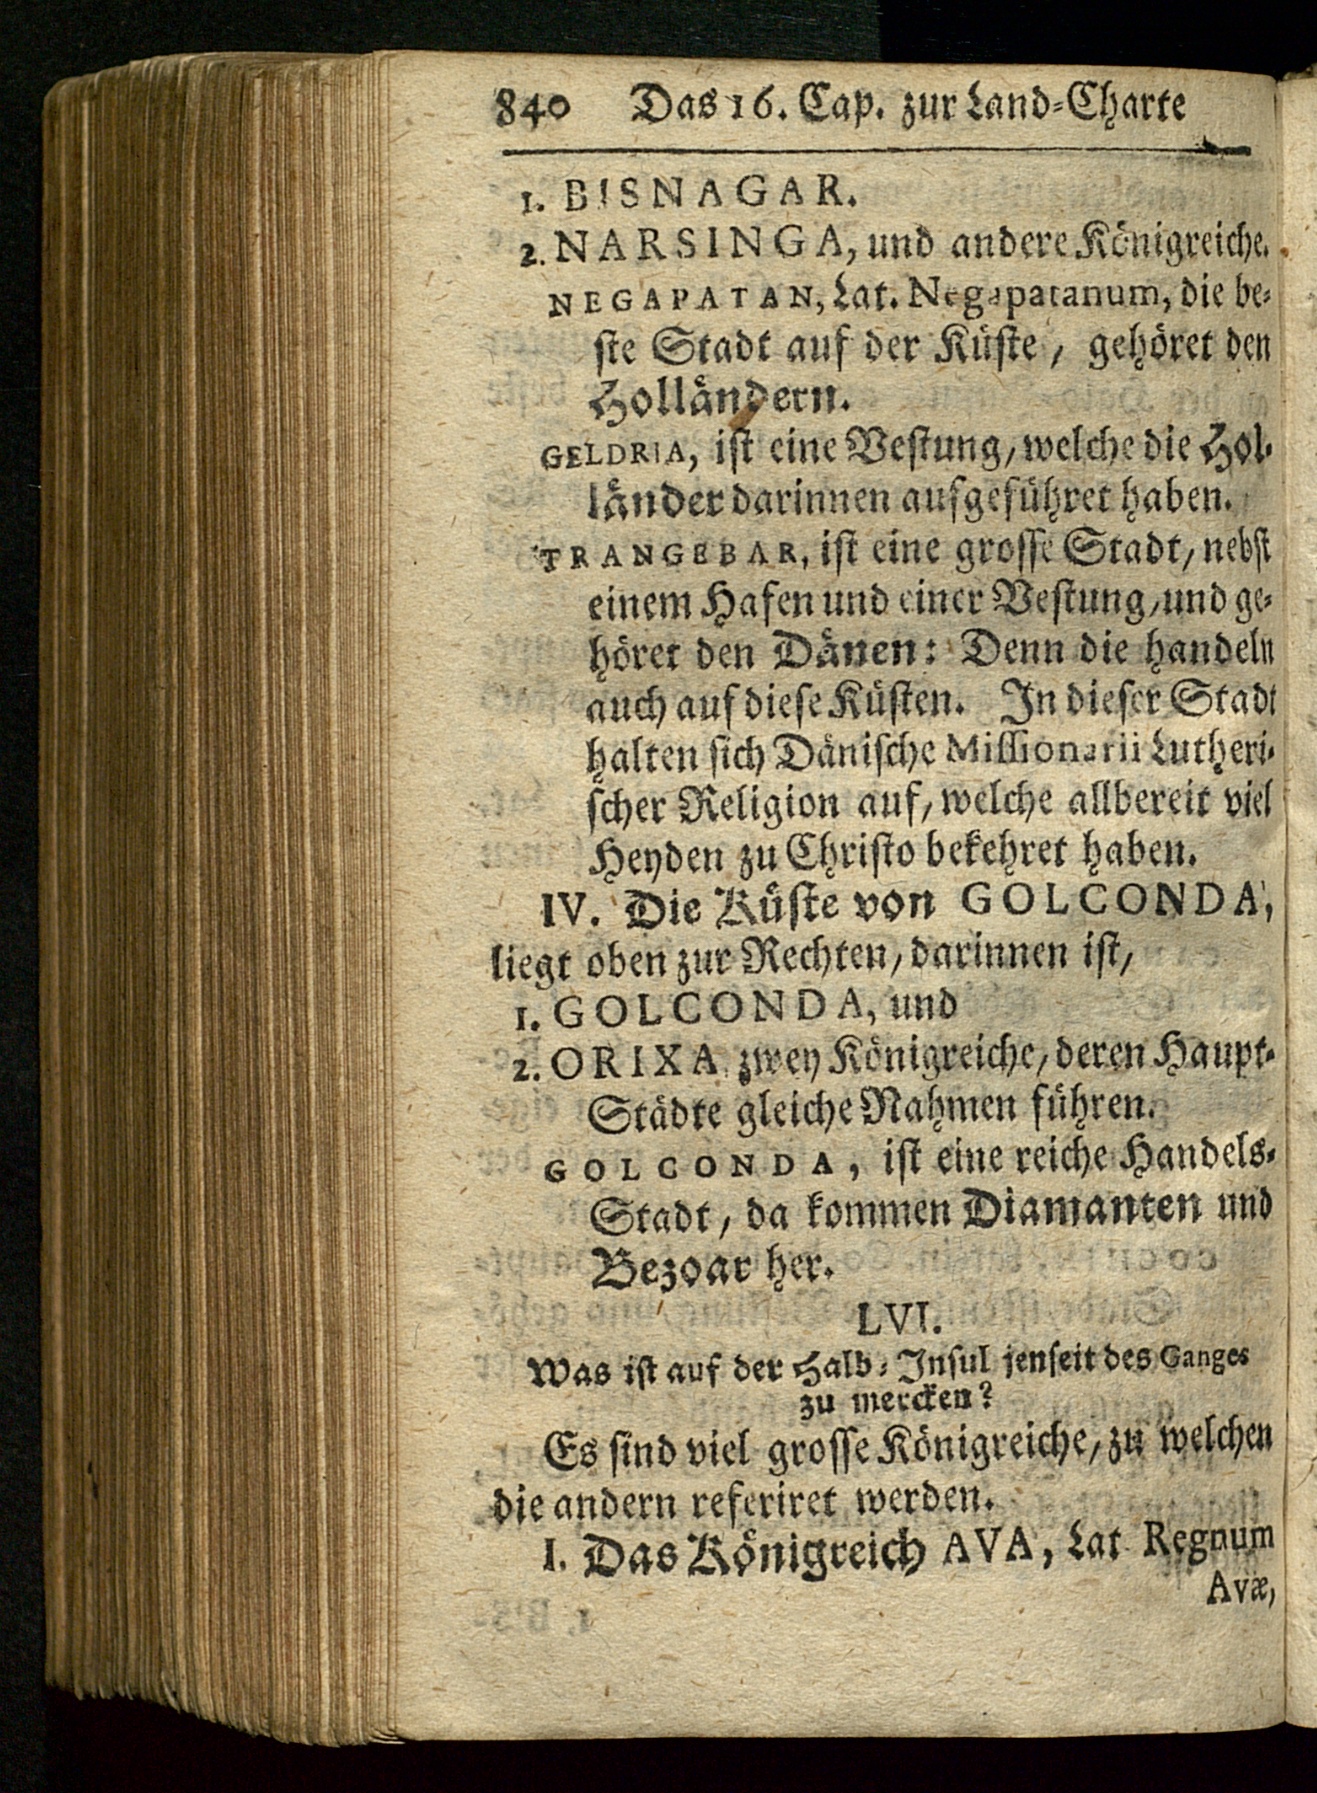 840 Das 16. Cap. zur Land-Charte
1. BISNAGAR.
2. NARSINGA, und andere Königreiche.
NEGAPATAN, Lat. Negapatanum, die be-
ste Stadt auf der Küste, gehöret den
Holländern.
GELDRIA, ist eine Vestung, welche die Hol-
länder darinnen aufgeführet haben.
TRANGEBAR, ist eine grosse Stadt, nebst
einem Hafen und einer Vestung, und ge-
höret den Dänen: Denn die handeln
auch auf diese Küsten. In dieser Stadt
halten sich Dänische Missionarii Lutheri-
scher Religion auf, welche allbereit viel
Heyden zu Christo bekehret haben.
IV. Die Küste von GOLCONDA,
liegt oben zur Rechten, darinnen ist,
1. GOLCONDA, und
2. ORIXA zwey Königreiche, deren Haupt-
Städte gleiche Nahmen führen.
GOLCONDA, ist eine reiche Handels-
Stadt, da kommen Diamanten und
Bezoar her.
LVI.
Was ist auf der Halb-Insul jenseit des Ganges
zu mercken?
Es sind viel grosse Königreiche, zu welchen
die andern referiret werden.
I. Das Königreich AVA, Lat. Regnum
Avæ,